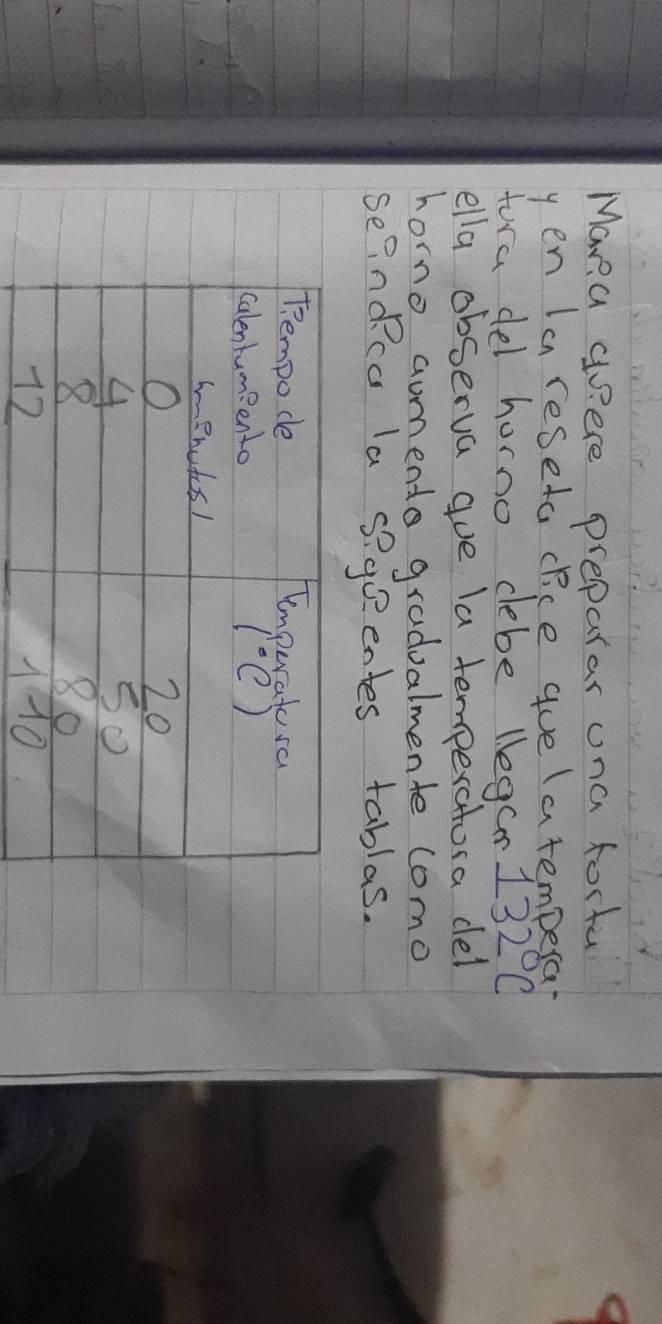 Maria quiere preparar una torta
y en la reseta dice que la tempera-
tura del horno debe llegar 132°C
ella observa que la temperatura del
horno aumenta gradualmente como
se indica la siguientes tablas.
Tiempo de calentamiento (minutos) Temperatura (°C)
0 20
4 50
8 80
12 110